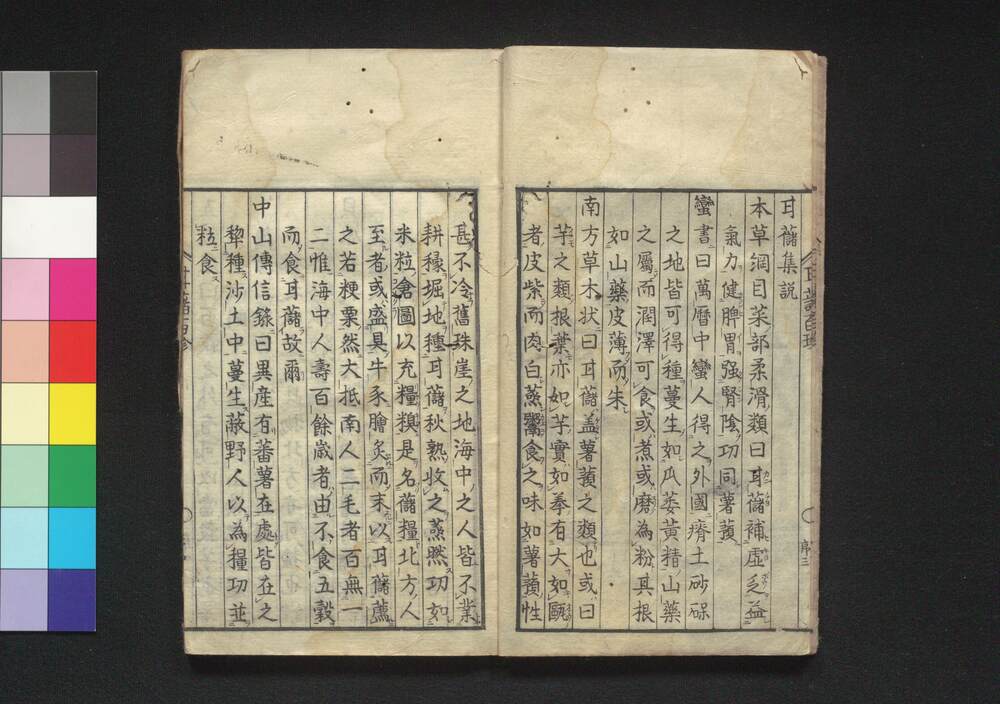 甘藷集説
本草綱目菜部柔滑類曰甘藷補虚乏益
氣力健脾胃强腎陰功同薯蕷
蠻書曰萬曆中蠻人得之外國瘠土砂磥
之地皆可得種蔓生如瓜蔞黃精山藥
之屬而潤澤可食或煮或磨為粉其根
如山藥皮薄而朱
南方草木状曰甘藷盖薯蕷之類也或曰
芋之類根葉亦如芋實如拳有大如甌
者皮紫而肉白蒸鬻食之味如薯蕷性
甚不冷舊珠崖之地海中之人皆不業
耕稼堀地種甘藷秋熟收之蒸晒切如
米粒倉圌以充糧糗是名藷糧北方人
至者或盛具牛豕膾炙而末以甘藷薦
之若粳粟然大抵南人二毛者百無一
二惟海中人壽百餘歳者由不食五穀
而食甘藷故爾
中山傳信錄曰異産有蕃薯在處皆在之
犂種沙土中蔓生蔽野人以為糧功並
粒食
甘藷百珍
序三
甘藷百珍